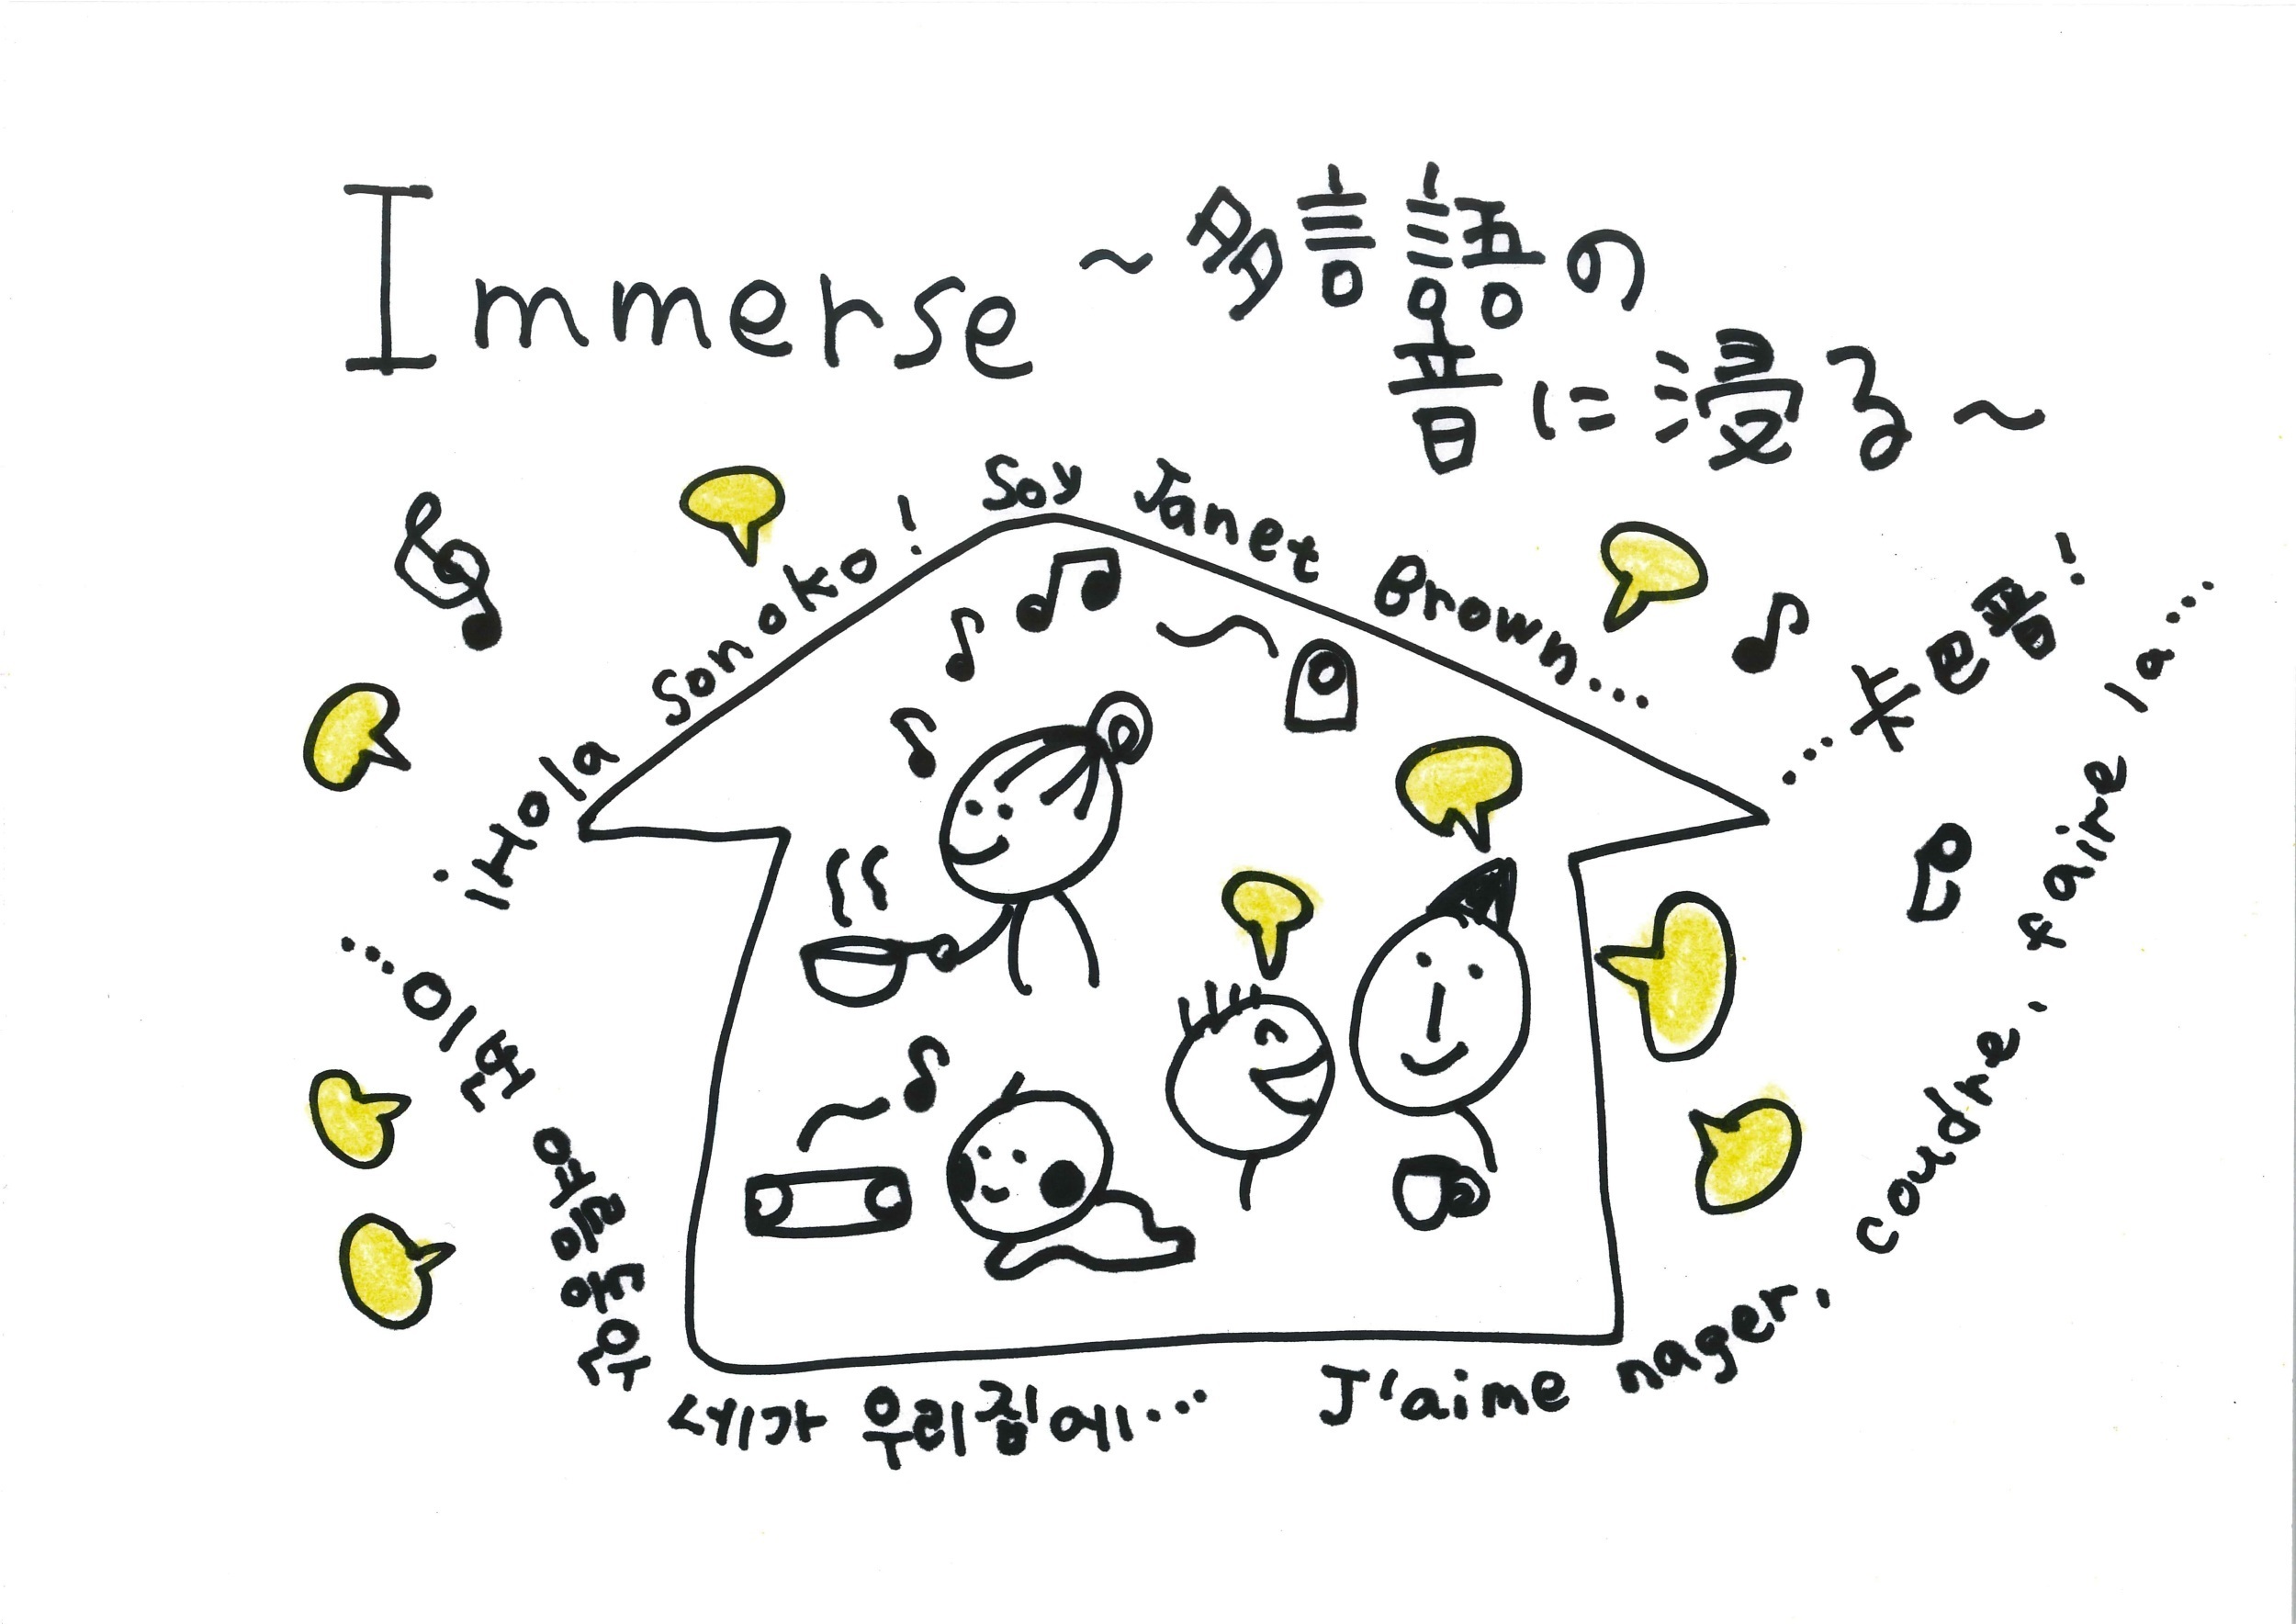 Immerse ~多言語の
音に浸る~
¡Hola Sonoko! Soy Janet Brown...
...卡巴普!
...이번 여름
우리집에...
J'aime nager, coudre, faire la...